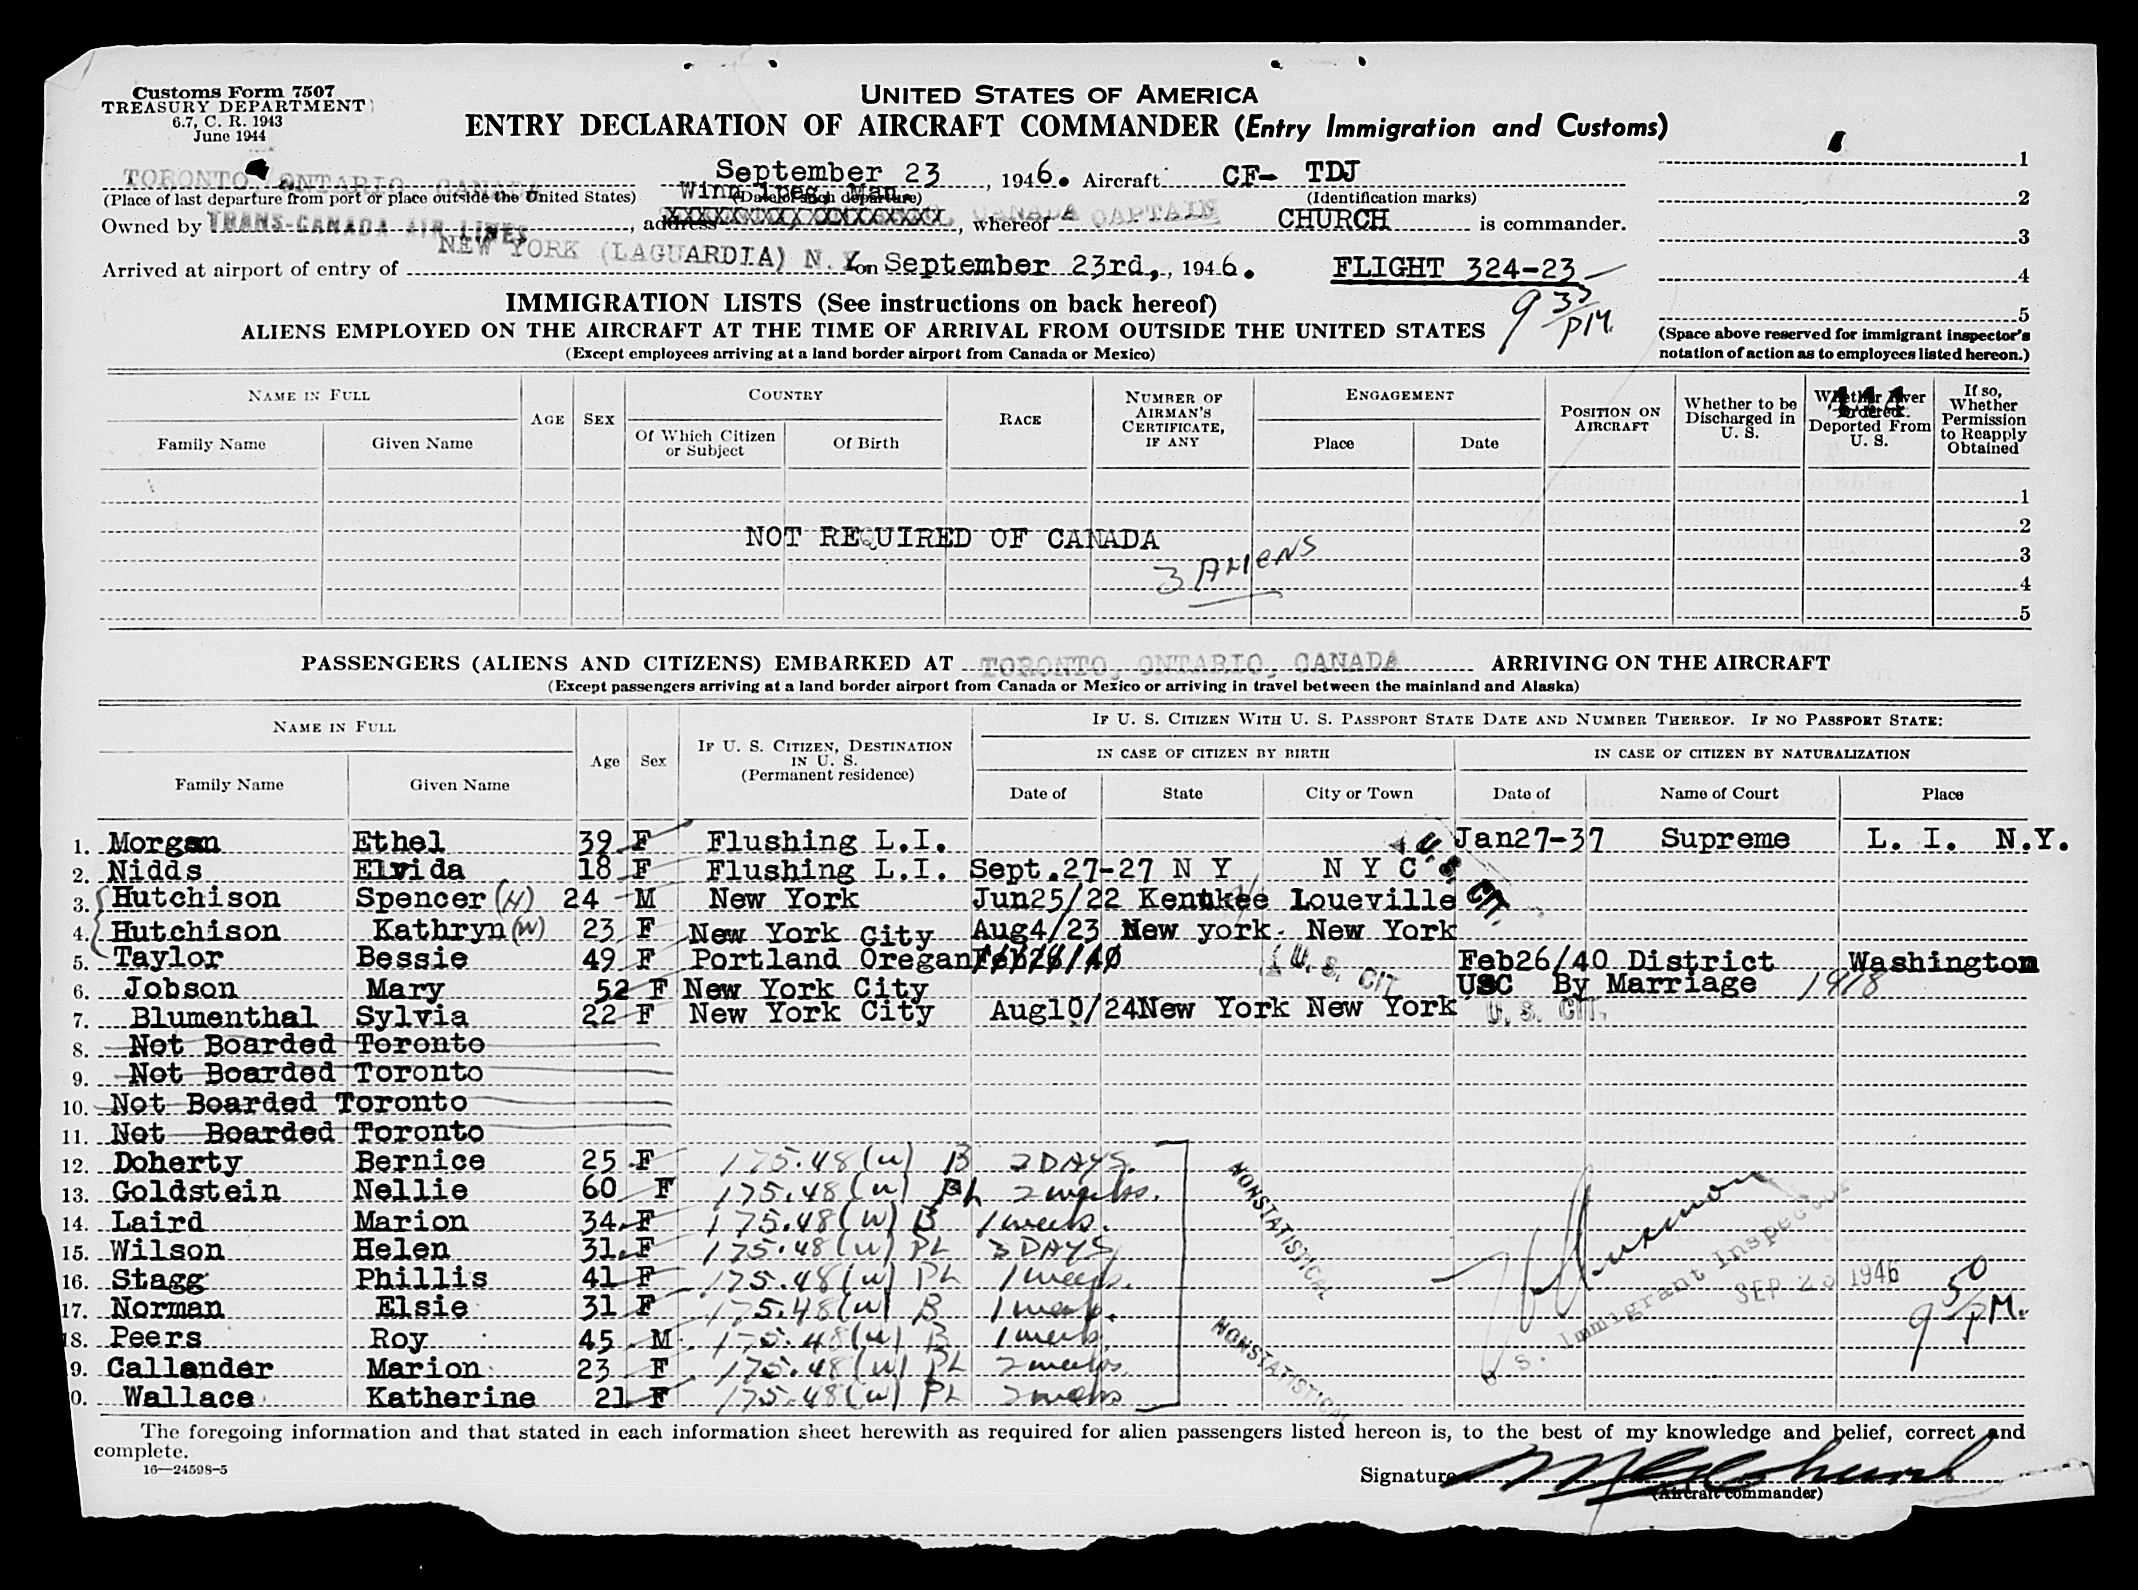 Customs Form 7507
TREASURY DEPARTMENT
6.7, C. R. 1943
June 1944
UNITED STATES OF AMERICA
ENTRY DECLARATION OF AIRCRAFT COMMANDER (Entry Immigration and Customs)
TORONTO, ONTARIO, CANADA September 23, 1946. Aircraft CF- TDJ 1
(Place of last departure from port or place outside the United States) (Date of such departure) (Identification marks) 2
Owned by TRANS-CANADA AIR LINES, address Winnipeg, Man. CANADA, whereof CAPTAIN CHURCH is commander. 3
Arrived at airport of entry of NEW YORK (LAGUARDIA) N.Y. on September 23rd,, 1946. FLIGHT 324-23 4
9 35 PM. 5
IMMIGRATION LISTS (See instructions on back hereof)
ALIENS EMPLOYED ON THE AIRCRAFT AT THE TIME OF ARRIVAL FROM OUTSIDE THE UNITED STATES
(Space above reserved for immigrant inspector's
notation of action as to employees listed hereon.)
(Except employees arriving at a land border airport from Canada or Mexico)
NAME IN FULL AGE SEX COUNTRY RACE NUMBER OF AIRMAN'S CERTIFICATE, IF ANY ENGAGEMENT POSITION ON AIRCRAFT Whether to be Discharged in U. S. Whether Ever Ordered Deported From U. S. If so, Whether Permission to Reapply Obtained
Family Name Given Name Of Which Citizen or Subject Of Birth Place Date
1
2
NOT REQUIRED OF CANADA
3 ALIENS 3
4
5
PASSENGERS (ALIENS AND CITIZENS) EMBARKED AT TORONTO, ONTARIO, CANADA ARRIVING ON THE AIRCRAFT
(Except passengers arriving at a land border airport from Canada or Mexico or arriving in travel between the mainland and Alaska)
NAME IN FULL Age Sex IF U. S. CITIZEN, DESTINATION IN U. S. (Permanent residence) IF U. S. CITIZEN WITH U. S. PASSPORT STATE DATE AND NUMBER THEREOF. IF NO PASSPORT STATE:
IN CASE OF CITIZEN BY BIRTH IN CASE OF CITIZEN BY NATURALIZATION
Family Name Given Name Date of State City or Town Date of Name of Court Place
1. Morgan Ethel 39 F Flushing L.I. Jan27-37 Supreme L. I. N.Y.
2. Nidds Elvida 18 F Flushing L.I. Sept.27-27 N Y N Y C U. S. CIT.
3. Hutchison Spencer (H) 24 M New York Jun25/22 Kentukee Loueville
4. Hutchison Kathryn (W) 23 F New York City Aug4/23 New york. New York
5. Taylor Bessie 49 F Portland Oregan Feb26/40 U. S. CIT Feb26/40 District Washington
6. Jobson Mary 52 F New York City USC By Marriage 1918
7. Blumenthal Sylvia 22 F New York City Aug10/24 New York New York U. S. CIT.
8. Not Boarded Toronto
9. Not Boarded Toronto
10. Not Boarded Toronto
11. Not Boarded Toronto
12. Doherty Bernice 25 F 175.48(w) B 2 DAYS.
13. Goldstein Nellie 60 F 175.48(w) BL 2 weeks.
14. Laird Marion 34 F 175.48(w) B 1 week.
15. Wilson Helen 31 F 175.48(w) PL 3 DAYS
16. Stagg Phillis 41 F 175.48(w) PL 1 week.
17. Norman Elsie 31 F 175.48(w) B 1 week.
18. Peers Roy 45 M 175.48(w) B 1 week
9. Callander Marion 23 F 175.48(w) PL 2 weeks.
0. Wallace Katherine 21 F 175.48(w) PL 2 weeks
NONSTATISTICAL
NONSTATISTICAL
U. S. Immigrant Inspector
SEP 23 1946
9 50 PM.
The foregoing information and that stated in each information sheet herewith as required for alien passengers listed hereon is, to the best of my knowledge and belief, correct and
complete.
16—24598-5
Signature
(Aircraft commander)